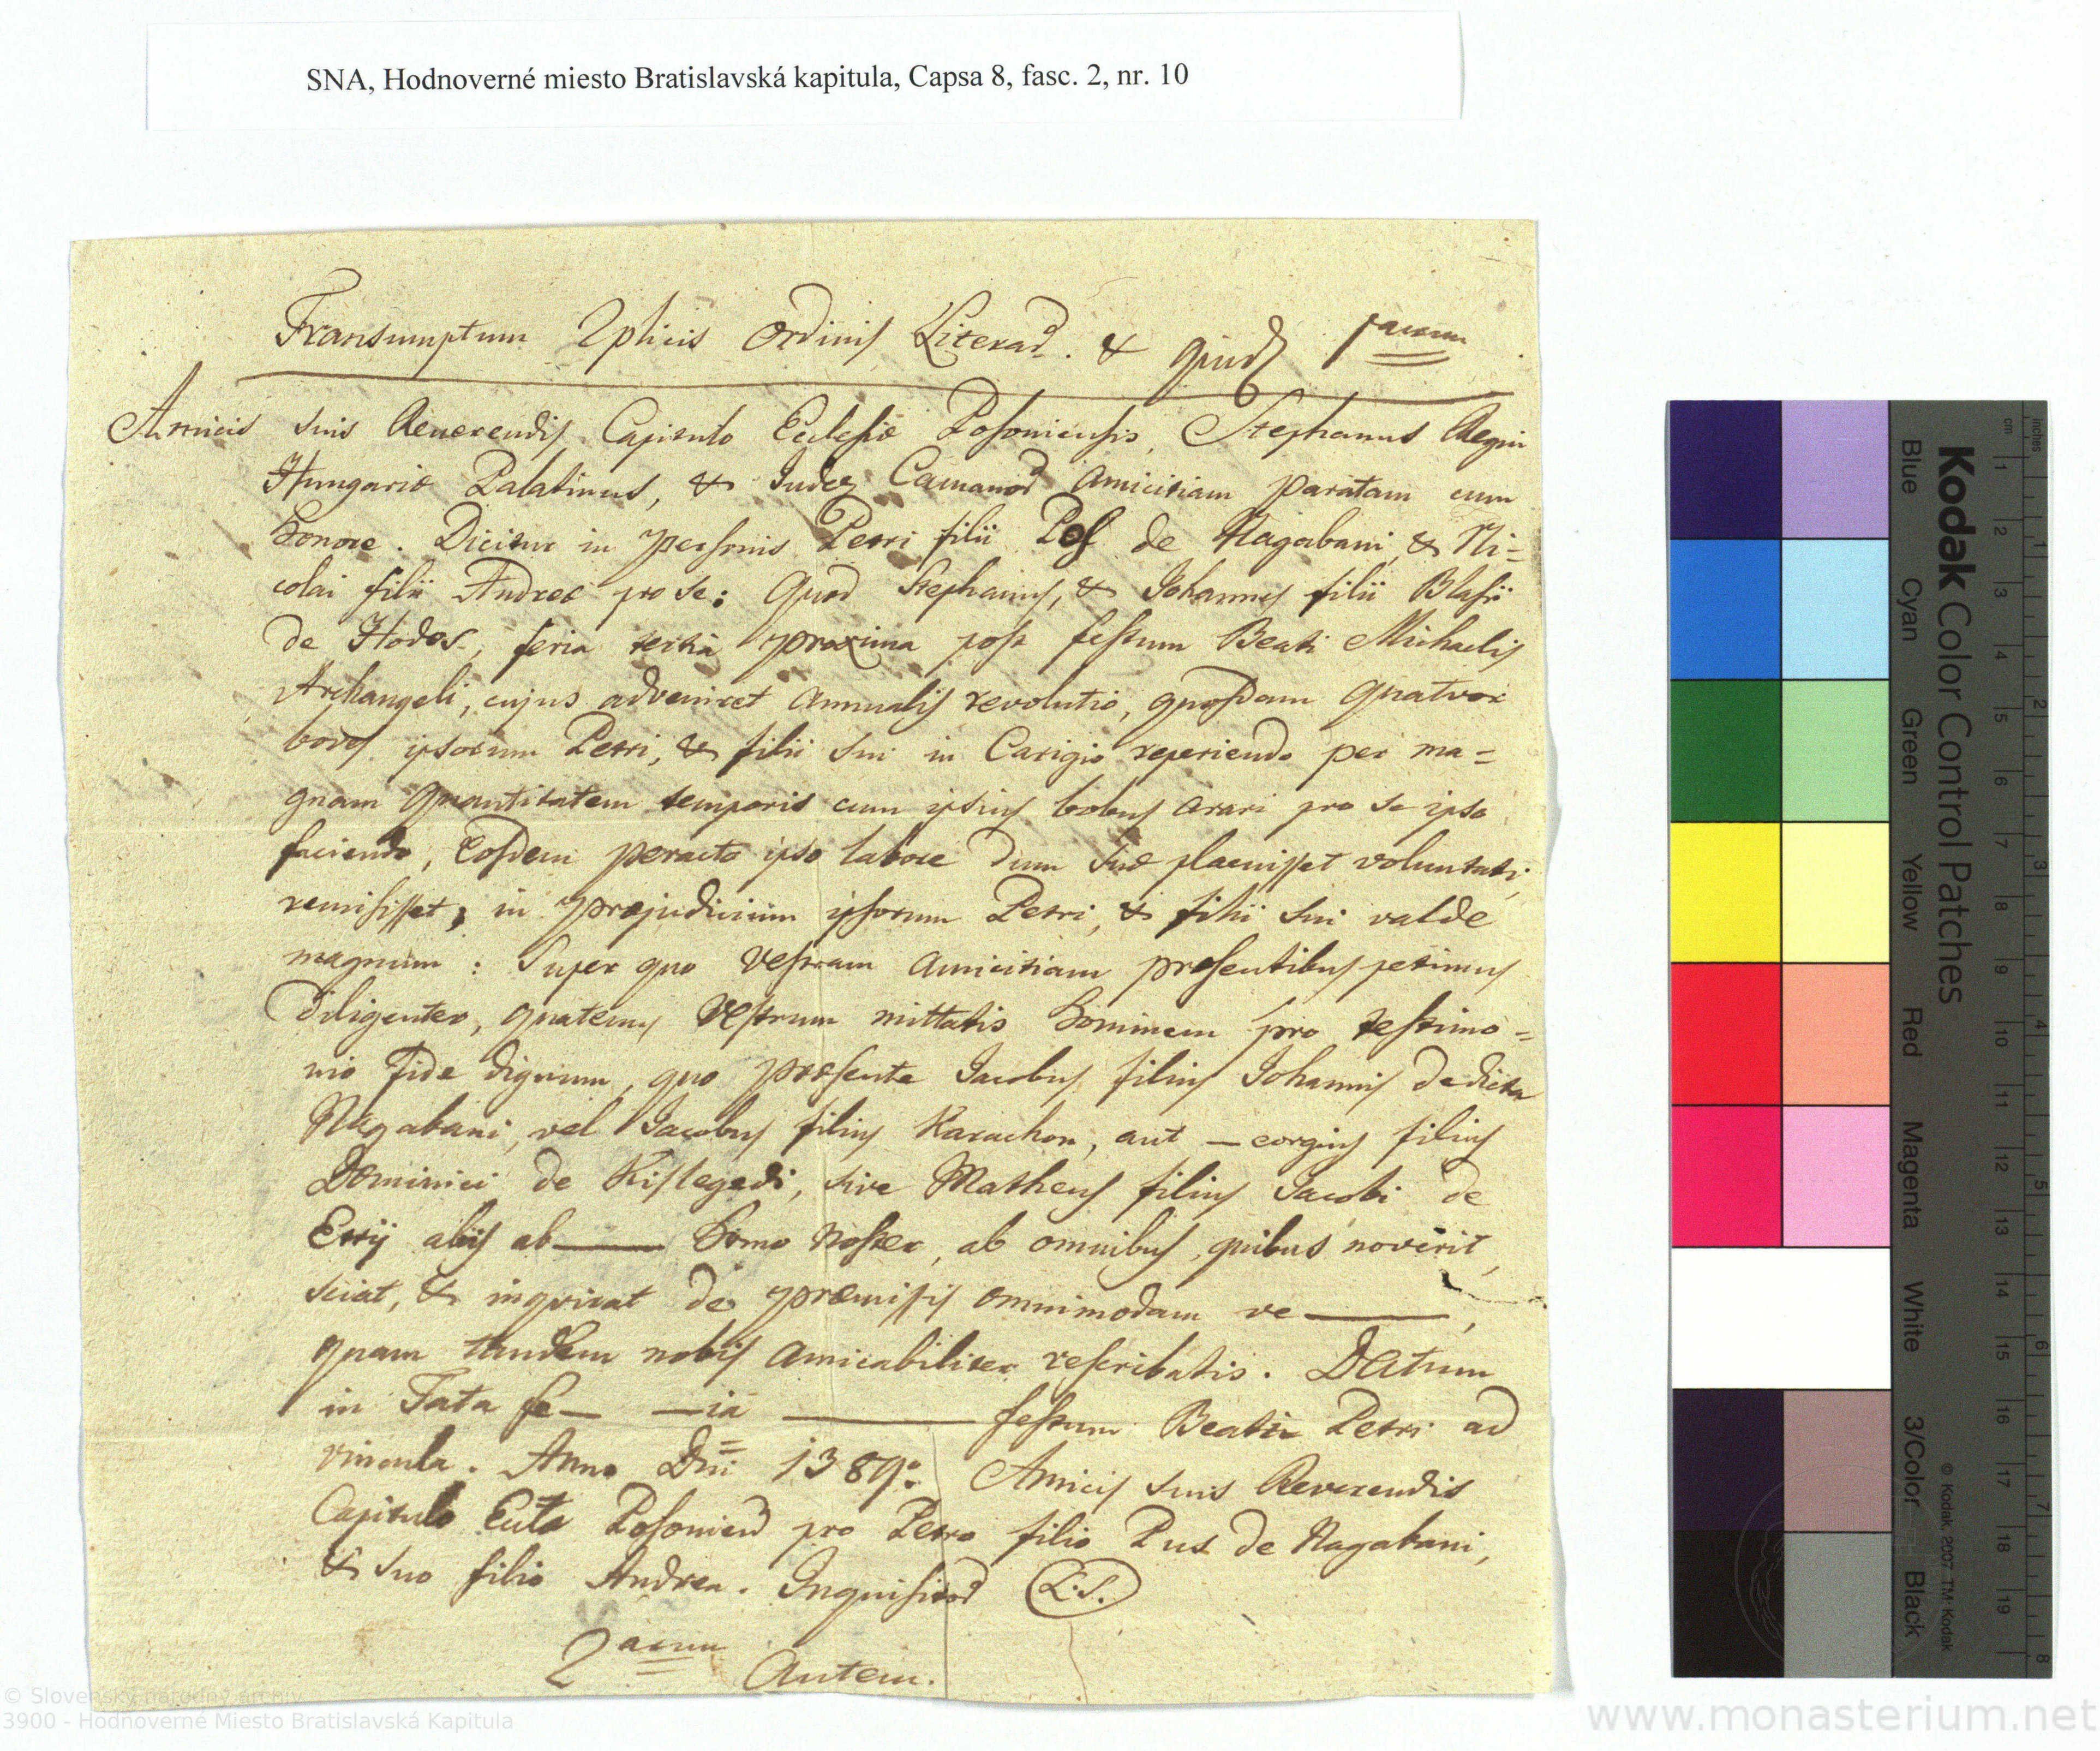 SNA, Hodnoverné miesto Bratislavská kapitula, Capsa 8, fasc. 2, nr. 10
Transumptum 2plicis Ordinis Literar. &
Amicis suis Reverendis Capitulo Ecclesiæ Posoniensis, Stephanus Regni
Hungariæ Palatinus, & Judex Comanor amicitiam paratam cum
honore. Dicitur in personis Petri filii Pos de Nagabani, & Ni=
colai filii Andreæ pro se: Quod Stephanus, & Johannes filii Blasii
de Hodos, feria tertia proxima post festum Beati Michaelis
Archangeli, cujus adveniret annualis revolutio, quosdam quatvor
boves ipsorum Petri, & filii sui in Carigio reperiendo per ma=
gnam quantitatem temporis cum ipsius bobus arari pro se ipso
faciendo, eosdem peracto ipso labore dum suæ placuisset voluntati,
remisisset, in præjudicium ipsorum Petri, & filii sui valde
magnum: Super quo vestram amicitiam præsentibus petimus
diligenter, quatenus vestrum mittatis hominem pro testimo=
nio fide dignum, quo præsente Jacobus filius Johannis de dicta
Nagabani, vel Jacobus filius Karachon, aut — eorgius filius
Dominici de Kislegedi, sive Matheus filius Jacobi de
Etty aliis ab—— homo noster, ab omnibus, quibus noverit,
sciat, & inquirat de præmissis omnimodam ve——,
quam tandem nobis amicabiliter rescribatis. Datum
in Tata fe— —ia —— festum Beati Petri ad
vincula. Anno Dni 1389. Amicis suis Reverendis
Capitulo Posonien pro Petro filio Pus de Nagabani,
& suo filio Andrea. Inquisitor (L.S.)
2 autem.
Kodak Color Control Patches
Blue Cyan Green Yellow Red Magenta White 3/Color Black
© Kodak, 2007 TM: Kodak
inches 1 2 3 4 5 6 7 8
cm 1 2 3 4 5 6 7 8 9 10 11 12 13 14 15 16 17 18 19
© Slovenský národný archív
3900 - Hodnoverné Miesto Bratislavská Kapitula
www.monasterium.net